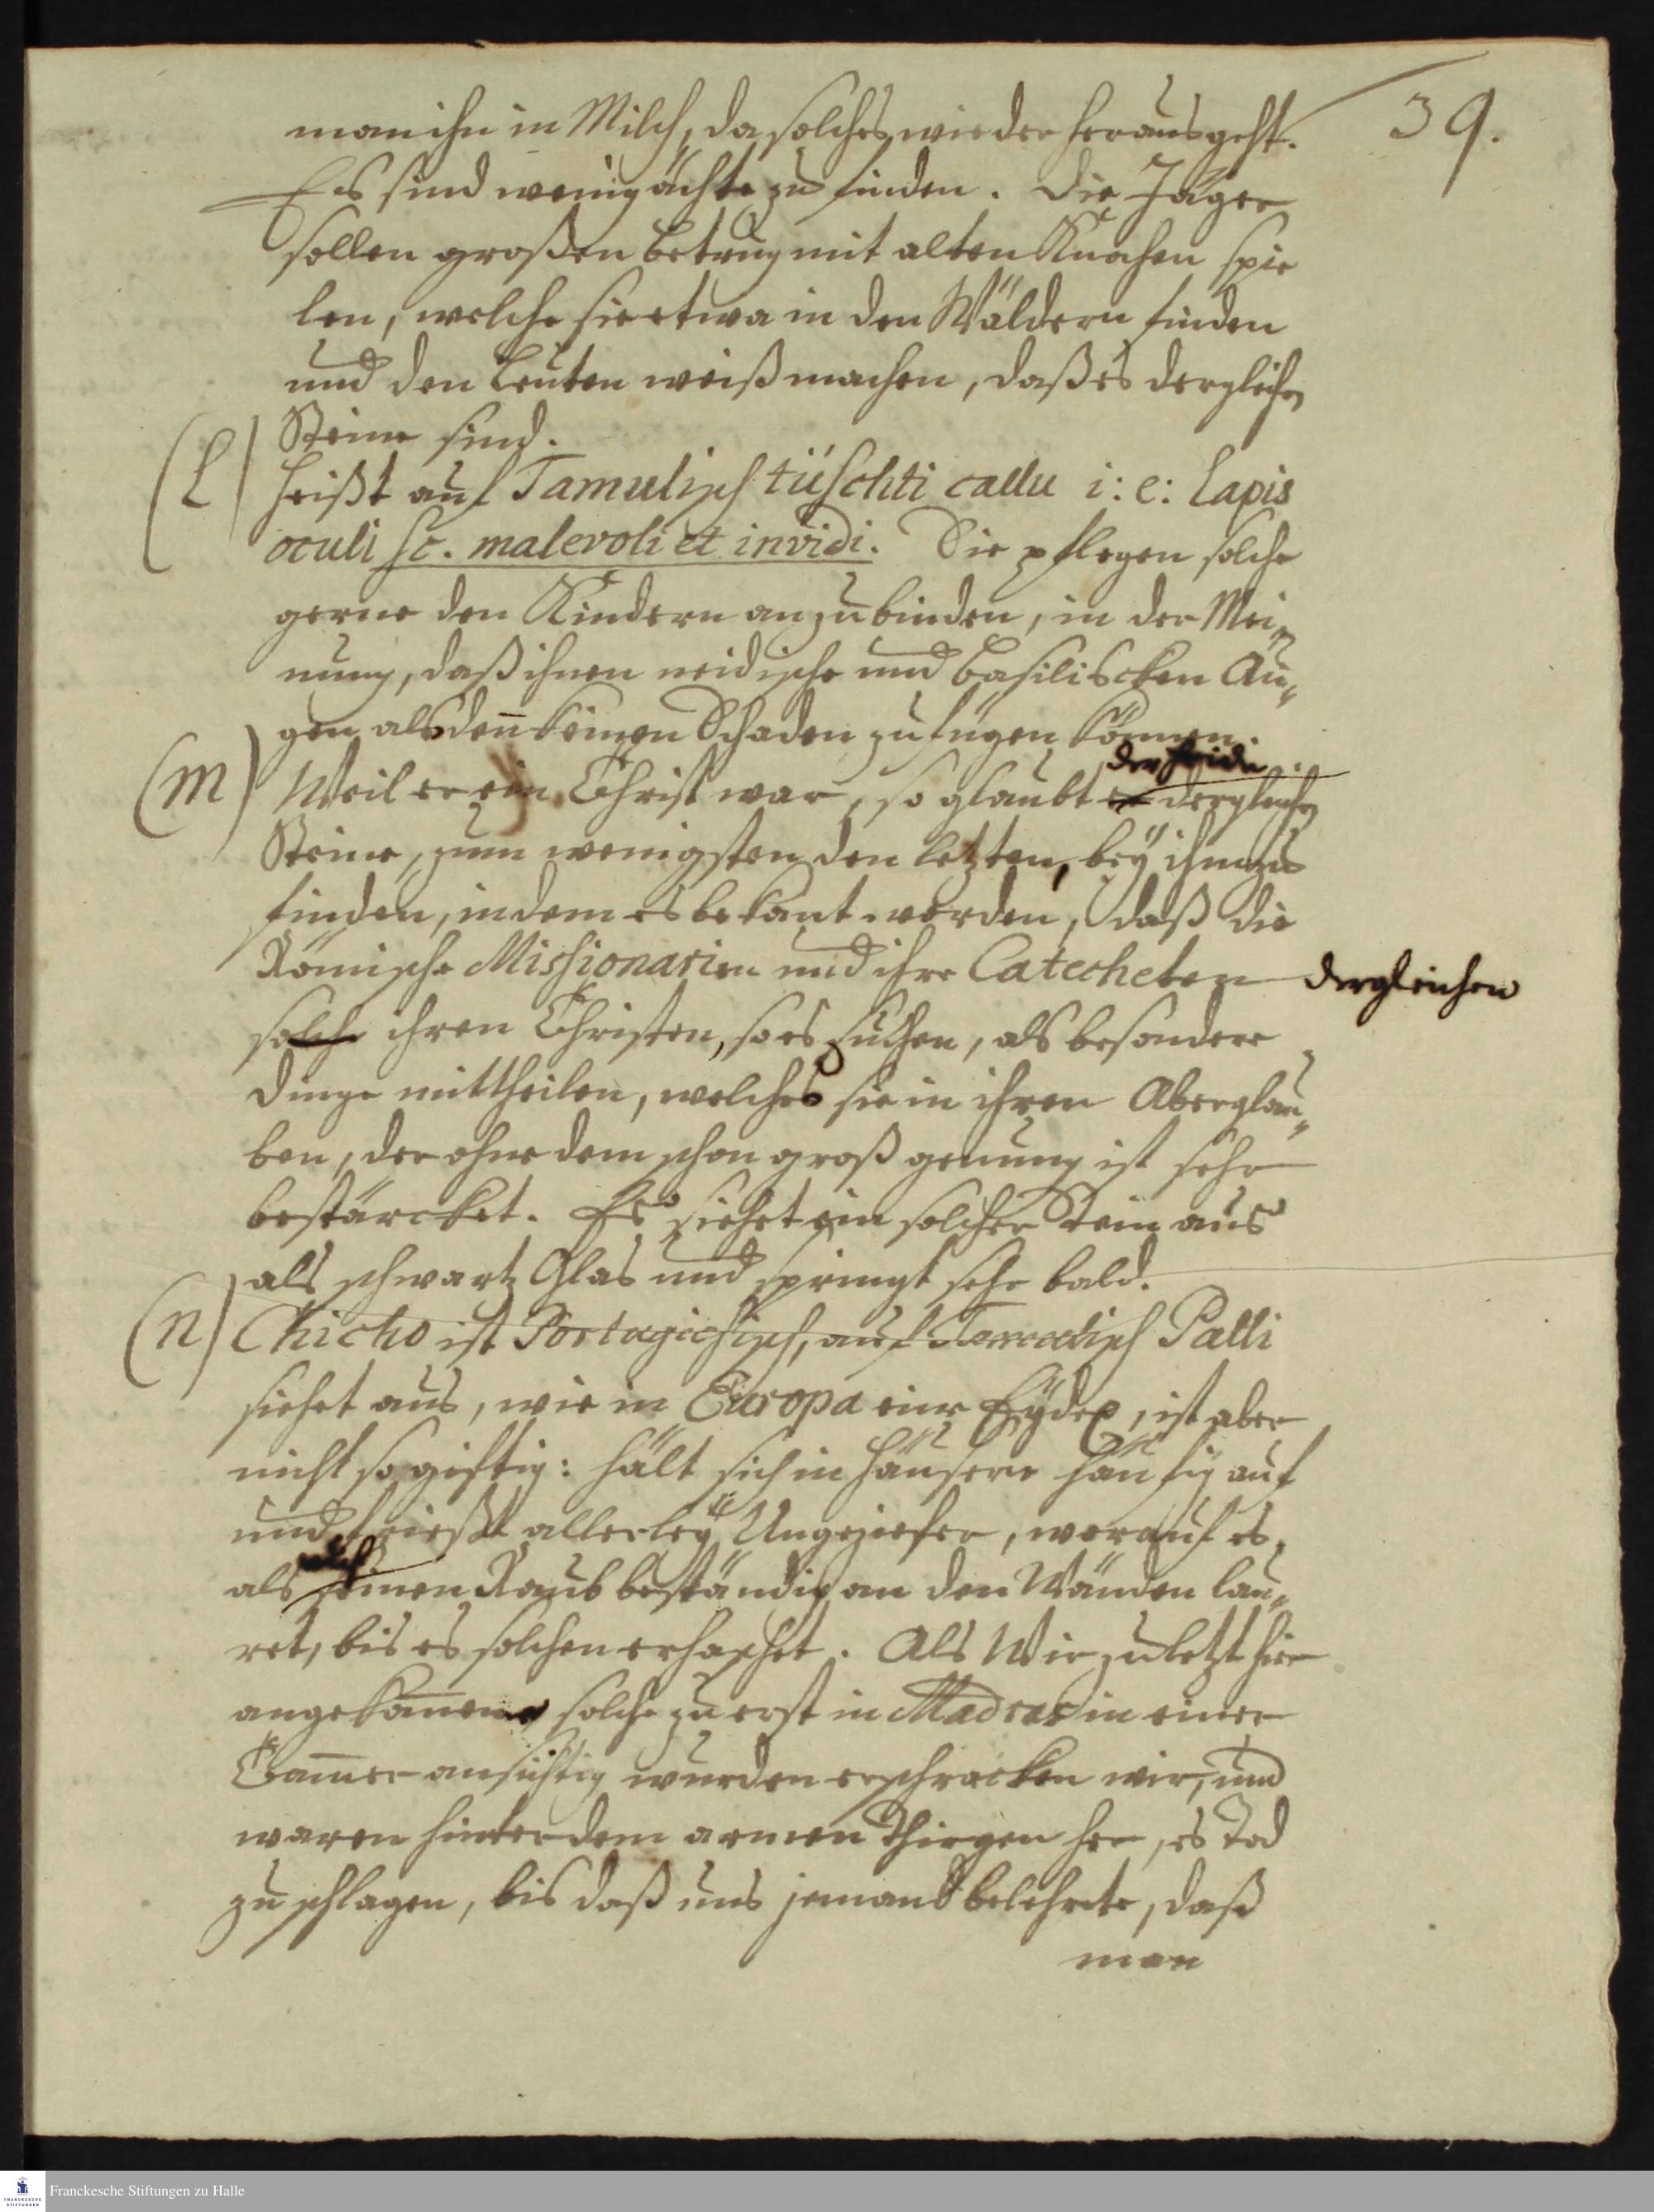 39.
man ihn in Milch, da solches wieder herausgeht.
Es sind wenig ächte zu finden. Die Jäger
sollen großen Betrug mit alten Knochen spie
len, welche sie etwa in den Wäldern finden
und den Leuten weiß machen, daß es dergleichen
Steine sind.
(l) heißt auf Tamulisch tüschti callu i: e: Lapis
oculi sc. malevoli et invidi. Sie pflegen solche
gerne den Kindern anzubinden, in der Mei-
nung, daß ihnen neidische und basiliscken Au-
gen alsdeñ keinen Schaden zufügen können.
der Heide
(m) Weil er ein Christ war, so glaubt er dergleichen
Steine, zum wenigsten den letzten, bey ihm zu
finden, indem es bekant worden, daß die
Römische Missionarien und ihre Catecheten dergleichen
solche ihren Christen, so es suchen, als besondere
Dinge mittheilen, welches sie in ihren Aberglau-
ben, der ohne dem schon groß genung ist sehr
bestärcket. Es siehet ein solcher Stein aus
als schwartz Glas und springt sehr bald.
(n) Chicho ist Portugiesisch, auf Tamulisch Palli
siehet aus, wie in Europa eine Eydex, ist aber
nicht so giftig: hält sich in Häusern häufig auf
und frießt allerley Ungeziefer, worauf es,
als seinen Raub beständig an den Wänden lau-
ret, bis es solchen erhaschet. Als Wir zuletzt hier
angekom̃en solche zu erst in Madras in einer
Cam̃er ansichtig wurden erschracken wir, und
waren hinter dem armen Thiergen her, es Tod
zu schlagen, bis daß uns jemand belehrte, daß
man
Franckesche Stiftungen zu Halle